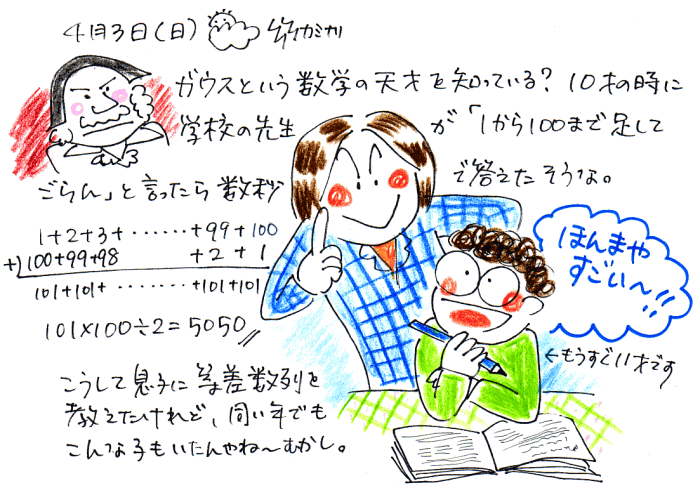 4月3日(日)
ガウスという数学の天才を知っている?10才の時に
学校の先生が「1から100まで足して
ごらん」と言ったら数秒で答えたそうな。
1+2+3+‥‥‥+99+100
+)100+99+98 +2+1
101+101+‥‥‥+101+101
101×100÷2=5050
ほんまや
すごい〜!!
←もうすぐ11才です
こうして息子に等差数列を
教えたけれど、同い年でも
こんな子もいたんやね〜むかし。